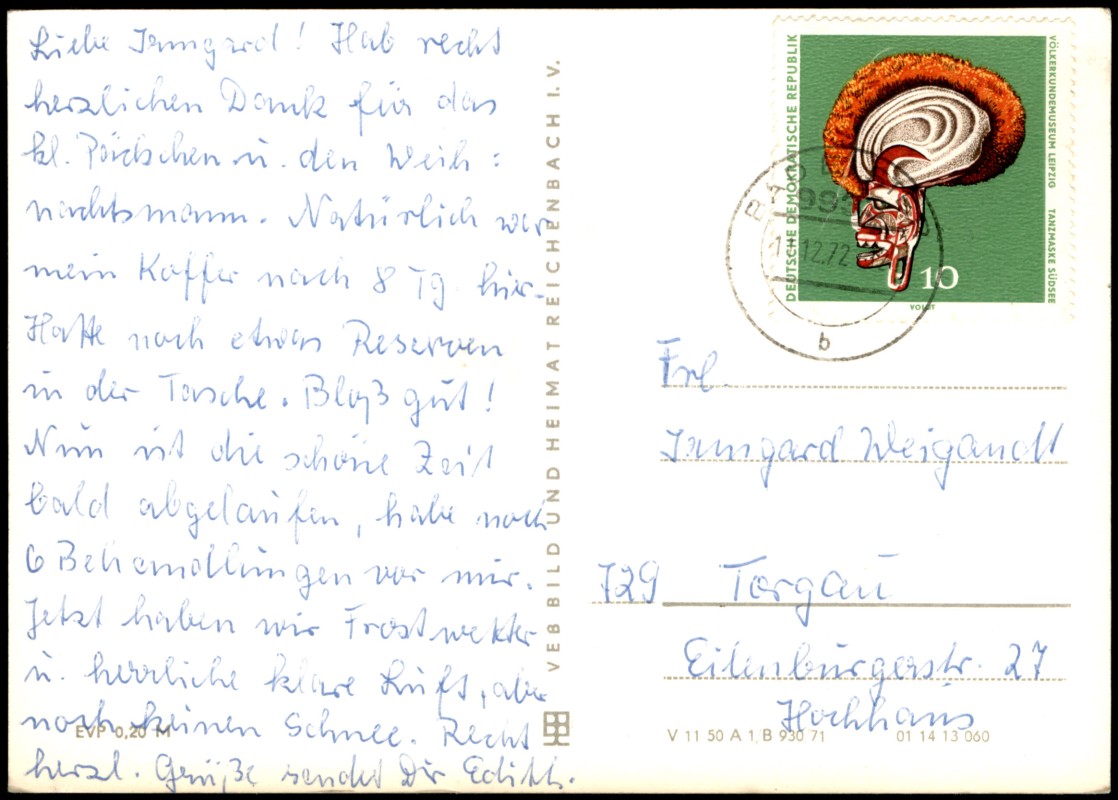 Liebe Irmgard! Hab recht
herzlichen Dank für das
kl. Päckchen u. den Weih=
nachtsmann. Natürlich war
mein Koffer nach 8 Tg. hier.
Hatte noch etwas Reserven
in der Tasche. Bloß gut!
Nun ist die schöne Zeit
bald abgelaufen, habe noch
6 Behandlungen vor mir.
Jetzt haben wir Frostwetter
u. herrliche klare Luft, aber
noch keinen Schnee. Recht
herzl. Grüße sendet Dir Edith.
EVP 0,20 M
VEB BILD UND HEIMAT REICHENBACH I. V.
DEUTSCHE DEMOKRATISCHE REPUBLIK
VÖLKERKUNDEMUSEUM LEIPZIG TANZMASKE SÜDSEE
10
VOIGT
BAD
12.72
b
Frl.
Irmgard Weigandt
729 Torgau
Eilenburgerstr. 27
Hochhaus
V 11 50 A 1, B 930 71 01 14 13 060